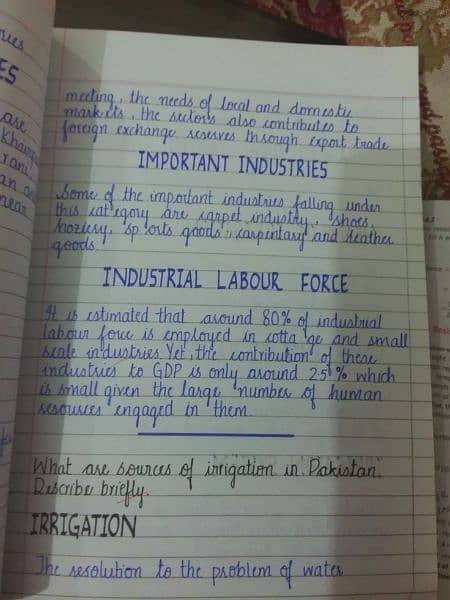 meeting, the needs of local and domestic
markets, the sectors also contributes to
foreign exchange reserves through export trade
IMPORTANT INDUSTRIES
Some of the important industries falling under
this category are carpet industry, shoes,
hoziery, sports goods, carpentary and leather
goods.
INDUSTRIAL LABOUR FORCE
It is estimated that around 80% of industrial
labour force is employed in cottage and small
scale industries. Yet, the contribution of these
industries to GDP is only around 25% which
is small given the large number of human
resources engaged in them.
What are sources of irrigation in Pakistan.
Describe briefly.
IRRIGATION
The resolution to the problem of water